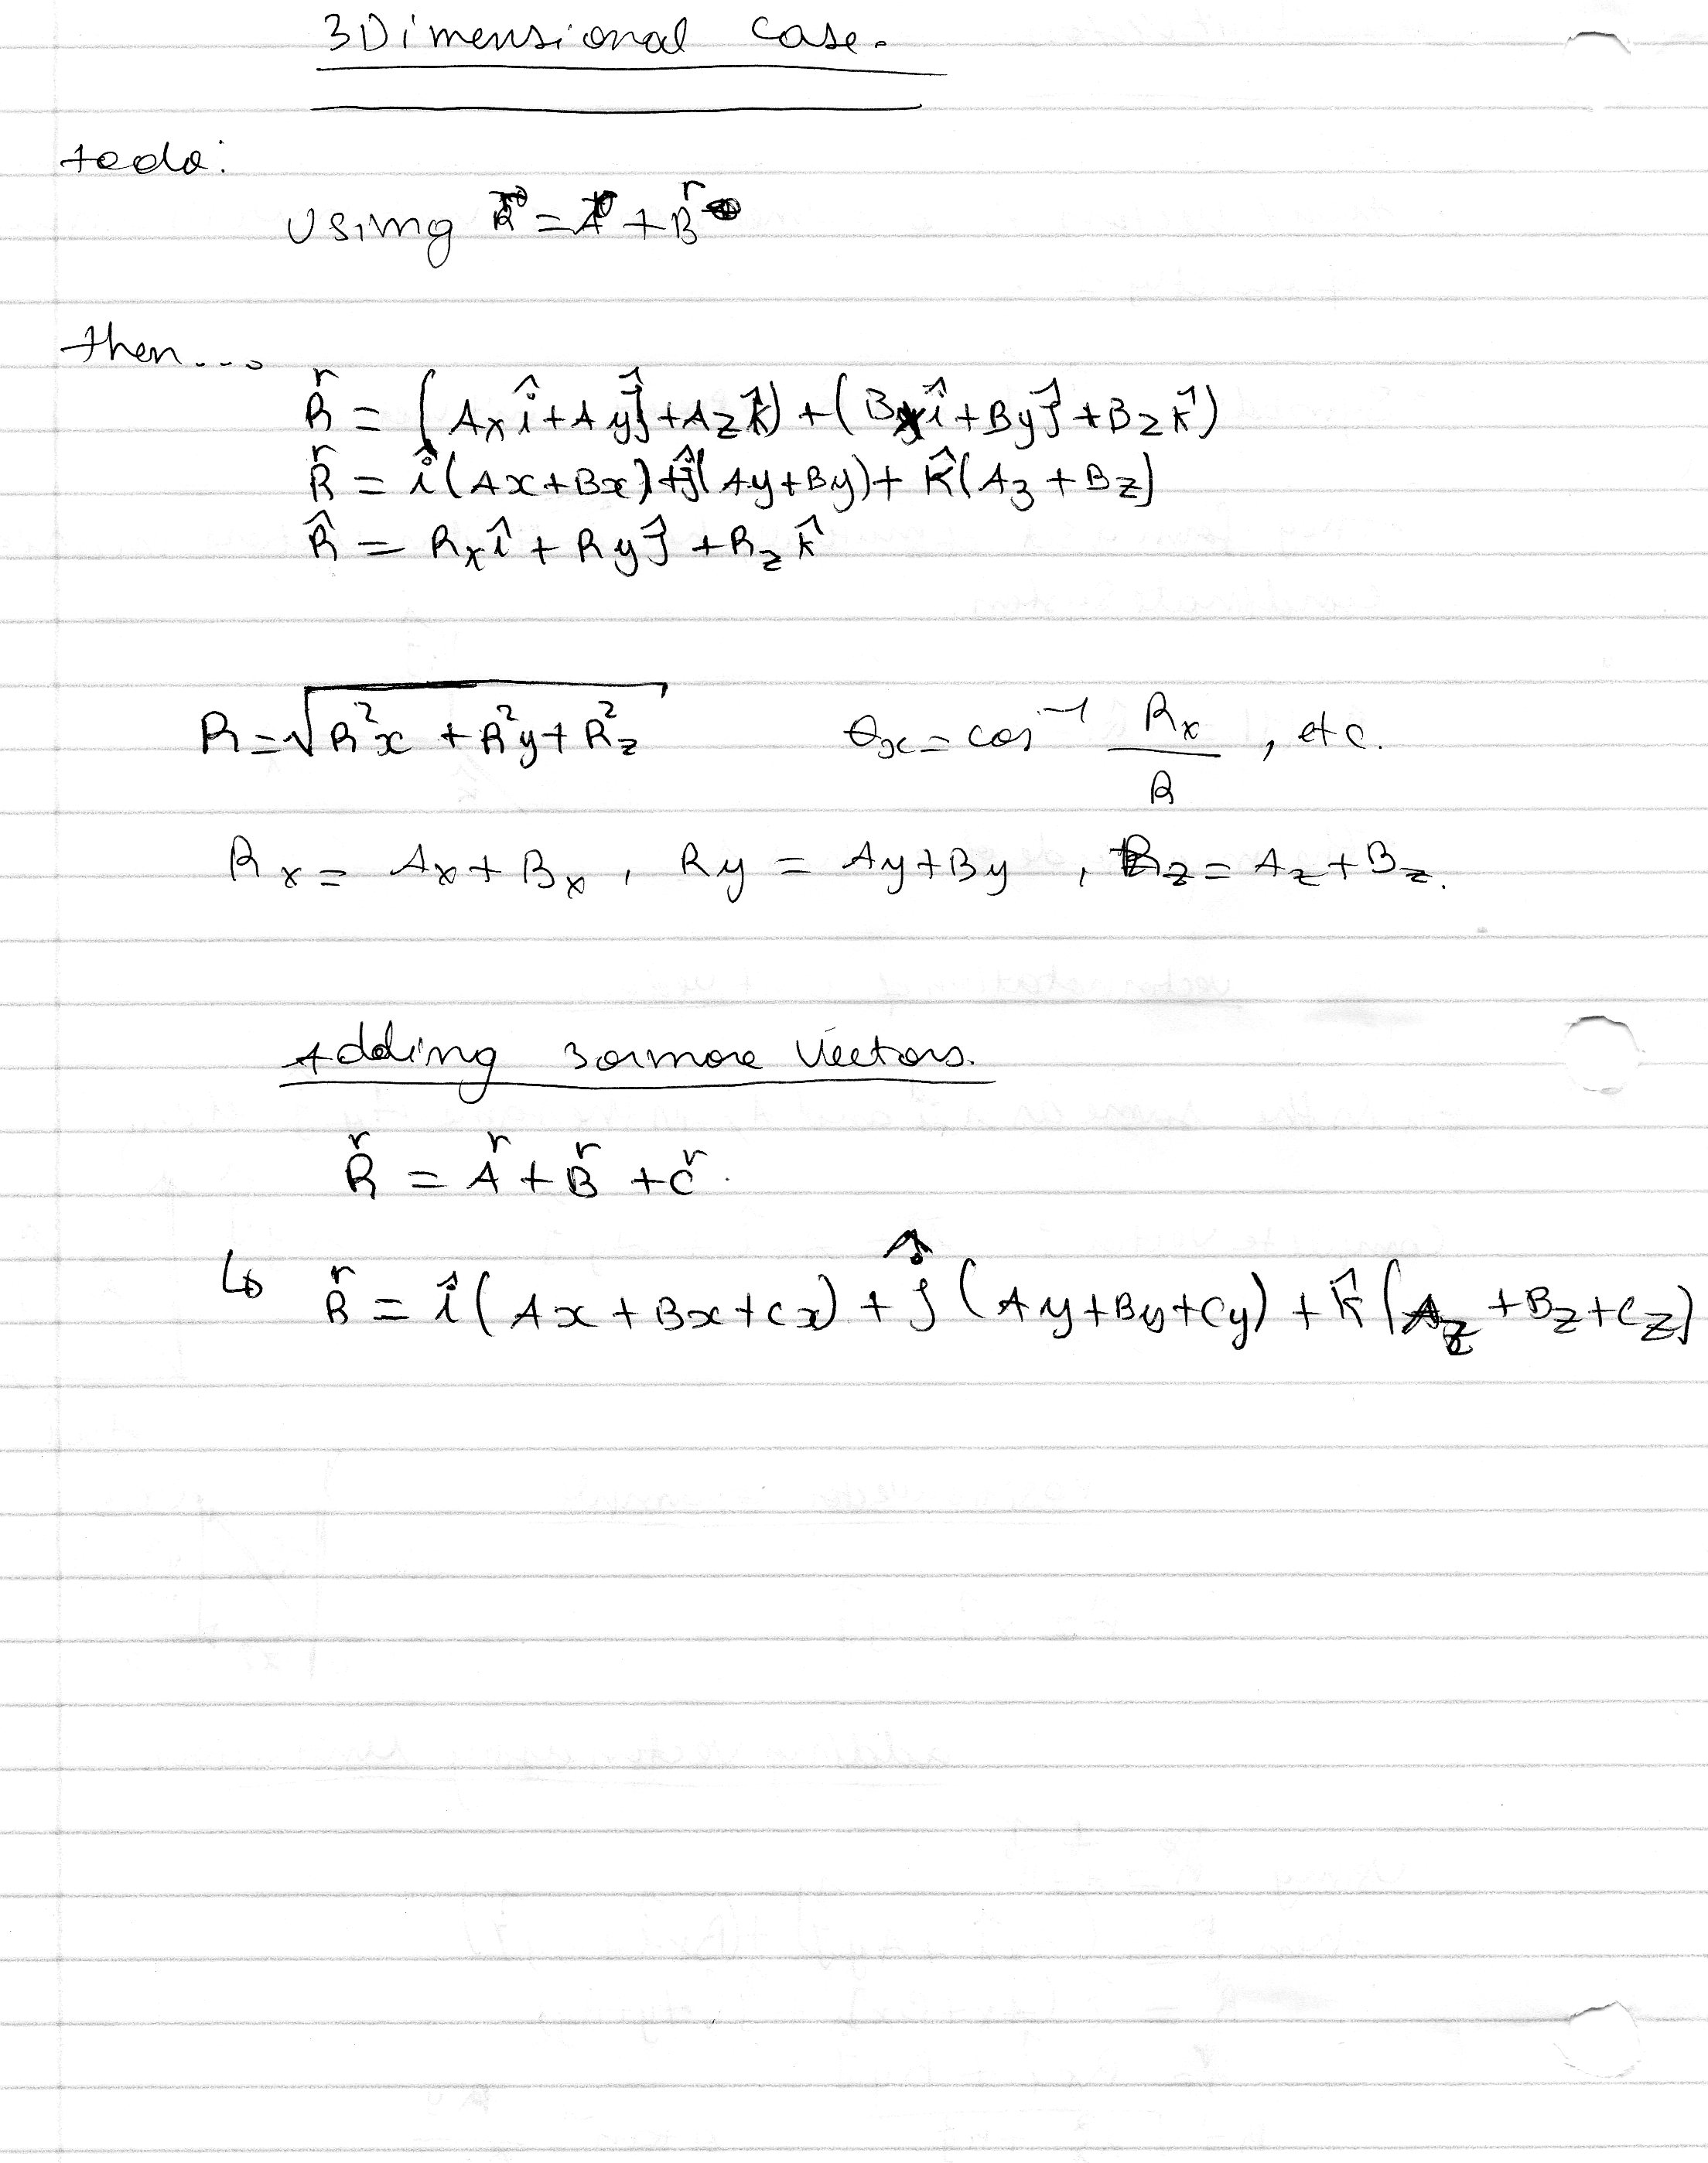 3Dimensional case.
todo:
Using R⃗ = A⃗ + B⃗
then....
R⃗ = (Ax î + Ay ĵ + Az k̂) + (Bx î + By ĵ + Bz k̂)
R⃗ = î(Ax+Bx) + ĵ(Ay+By) + k̂(Az + Bz)
R̂ = Rx î + Ry ĵ + Rz k̂
R = √(R²x + R²y + R²z)   θx = cos⁻¹ Rx/R , etc.
Rx = Ax + Bx , Ry = Ay+By , Rz = Az + Bz.
Adding 3 or more Vectors.
R⃗ = A⃗ + B⃗ + C⃗.
↳ R⃗ = î(Ax + Bx + Cx) + ĵ (Ay+By+Cy) + k̂ (Az + Bz + Cz)